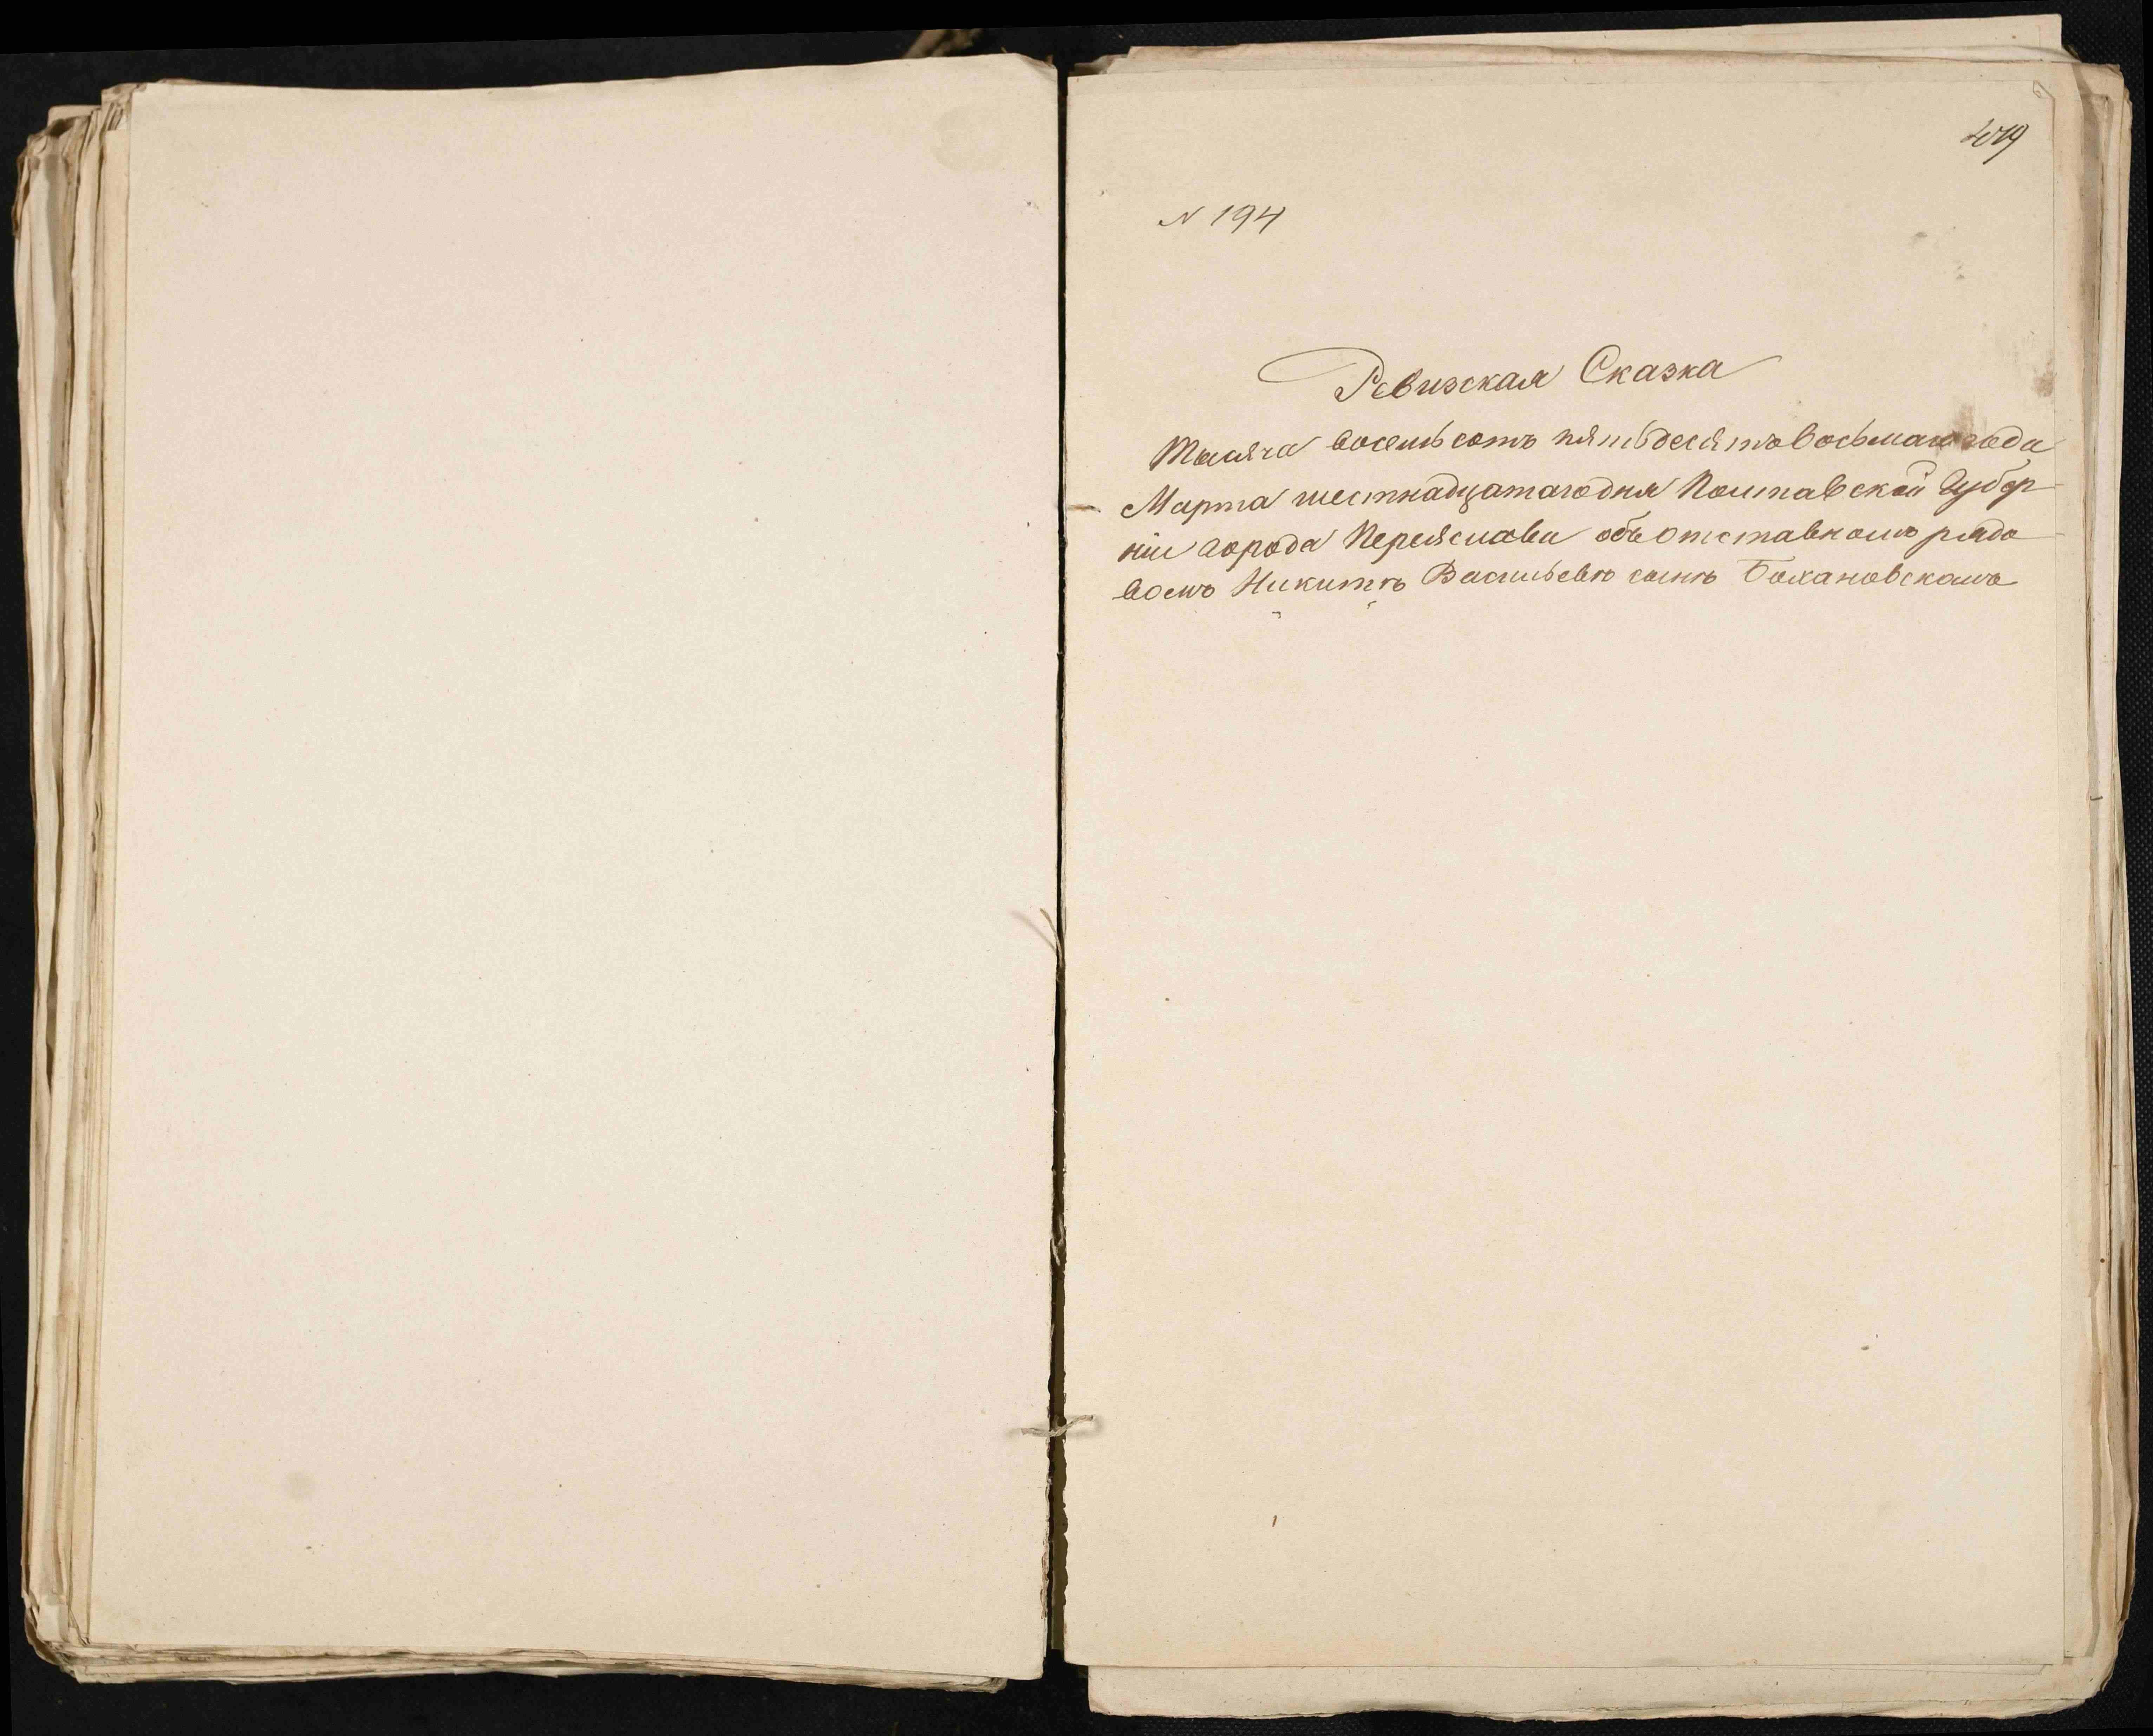 419
N 194
Ревизская Сказка
Тысяча восемьсотъ пятьдесятъ восьмаго года
Марта шестнадцатаго дня Полтавской Губер
ніи города Переяслава объ отставномъ рядо
вомъ Никитѣ Васильевѣ сынѣ Бохановскомъ